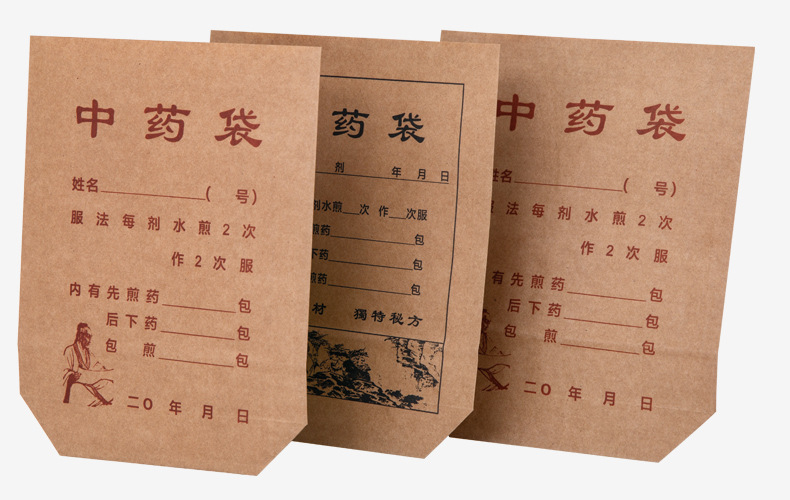 中药袋
姓名____________( 号)
服法每剂水煎2次
作2次服
内有先煎药________包
后下药________包
包煎________包
二O 年 月 日
药袋
剂 年 月 日
剂水煎__次 作__次服
煎药____________包
下药____________包
煎药____________包
材 獨特秘方
中药袋
姓名____________( 号)
服法每剂水煎2次
作2次服
有先煎药________包
后下药________包
包煎________包
二O 年 月 日